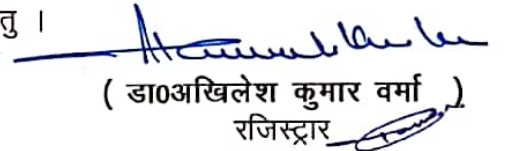 तु ।
( डा0अखिलेश कुमार वर्मा )
रजिस्ट्रार